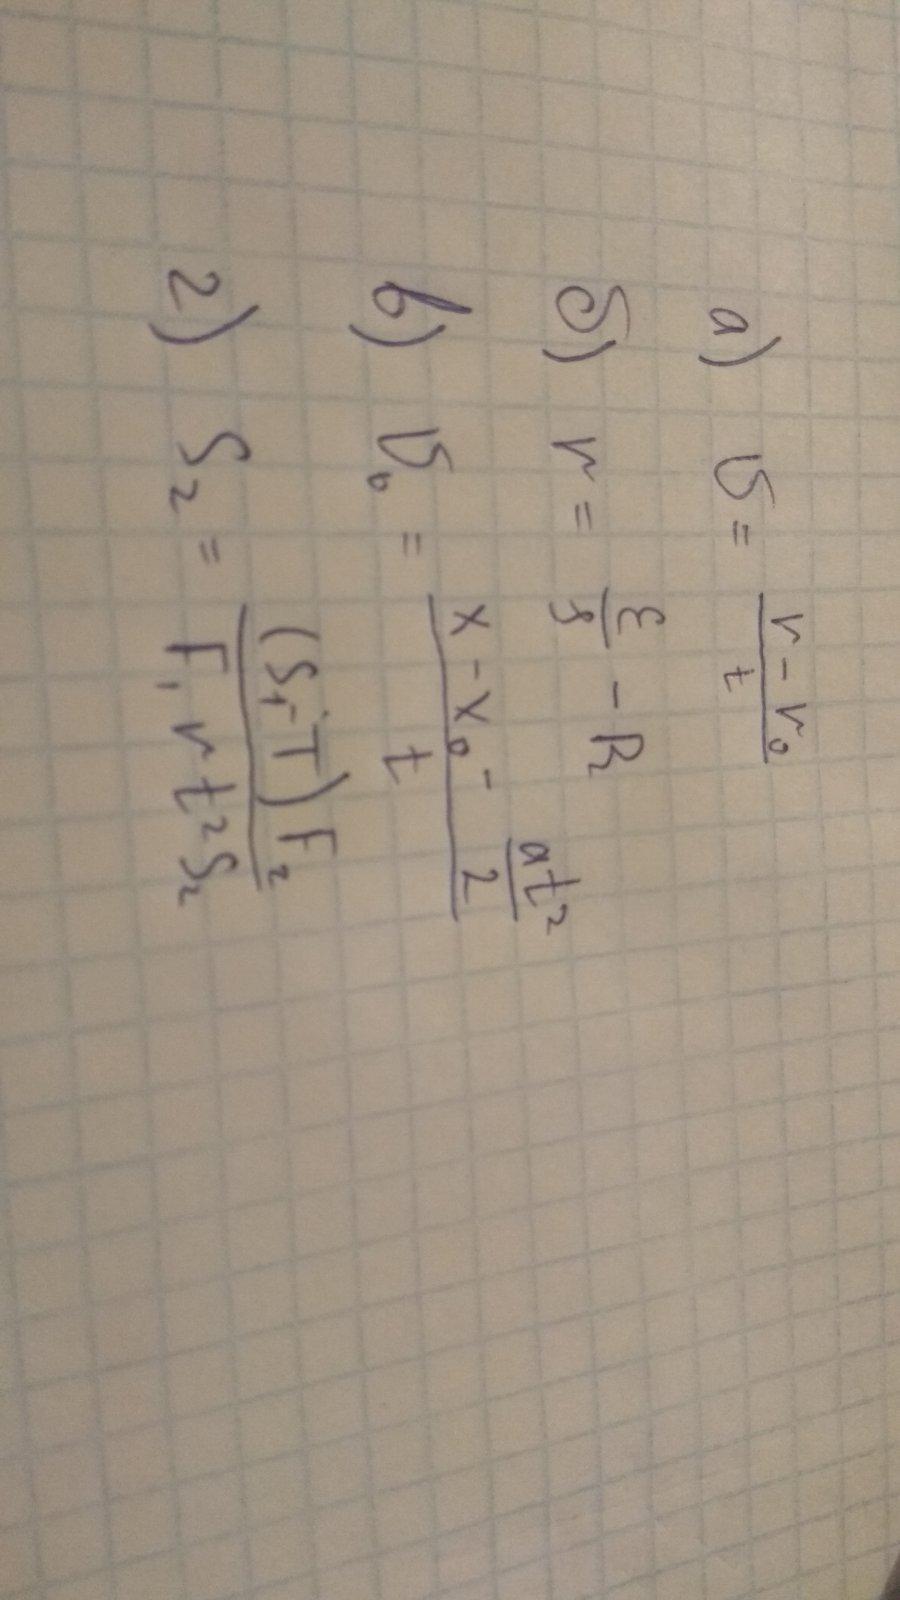 а) υ = (r - r₀)/t
б) r = ε/S - R
в) υ₀ = (x - x₀ - at²/2)/t
г) S₂ = ((S₁ - T) F₂)/(F₁ r t² S₂)